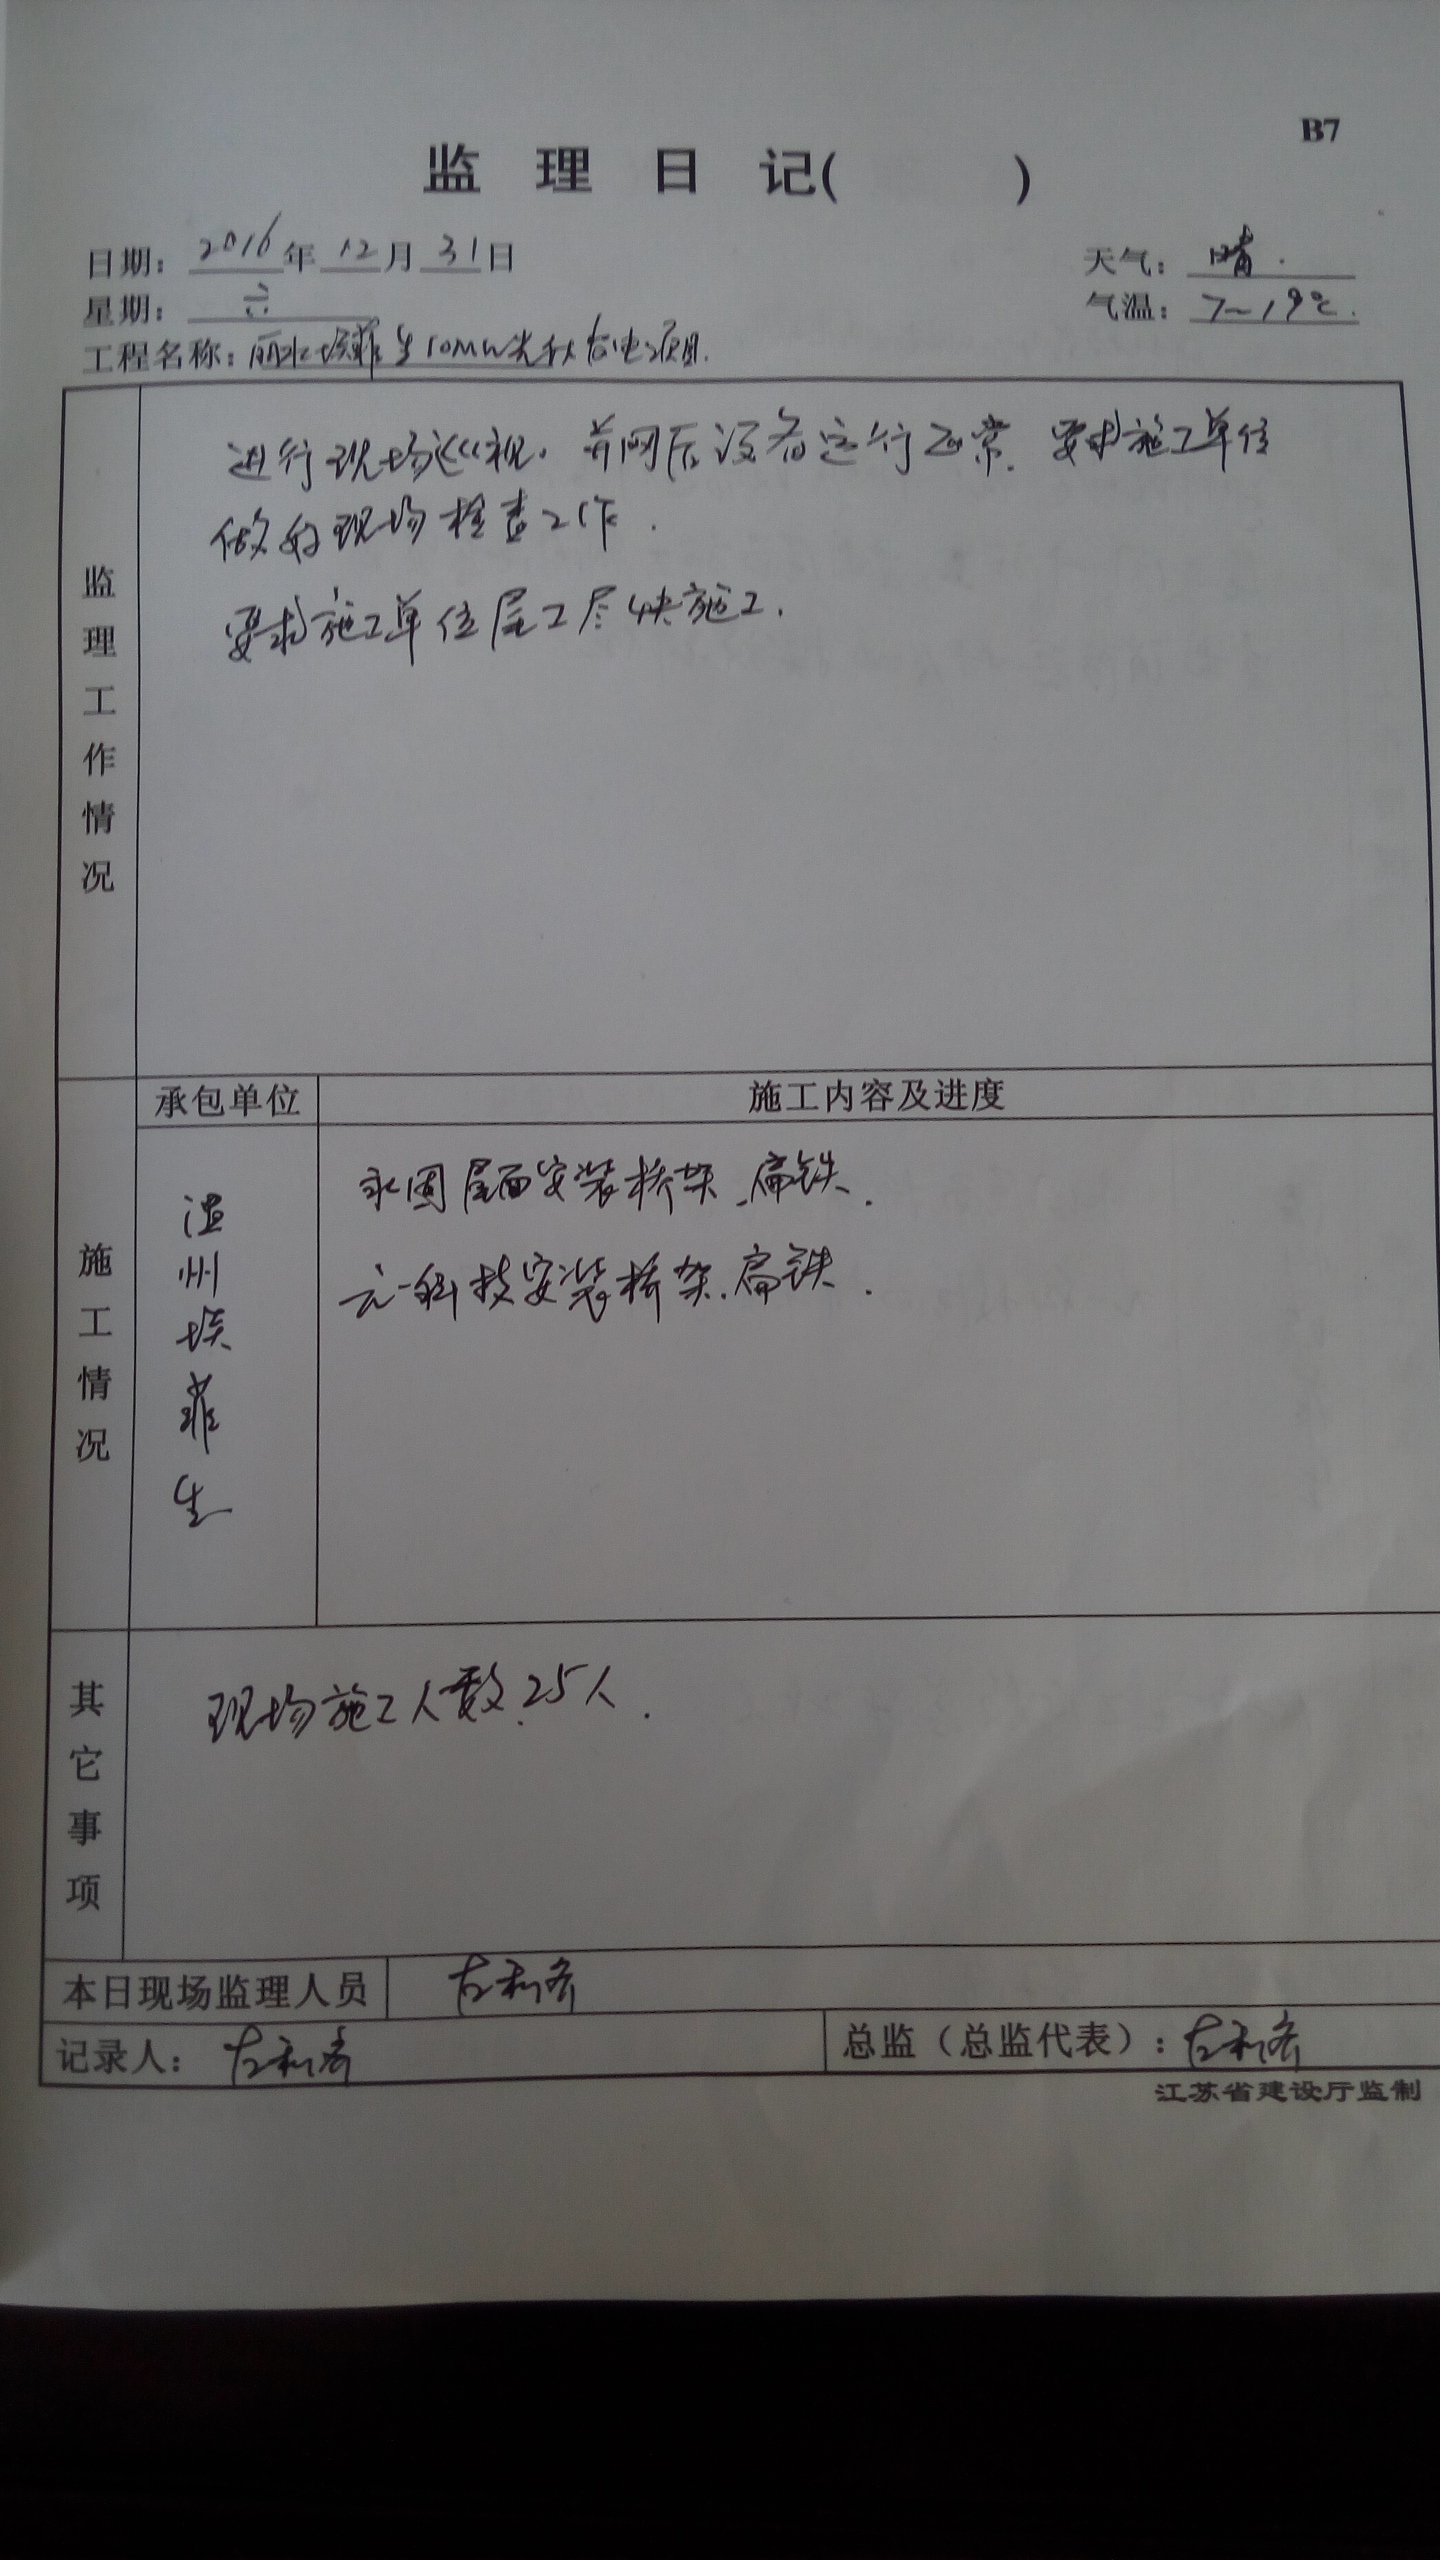 B7
监 理 日 记( )
日期: 2016 年 12 月 31 日
天气: 晴.
星期: 六
气温: 7~19℃.
工程名称: 丽水埃菲生10MW光伏发电项目.
监理工作情况
进行现场巡视. 并网后设备运行正常. 要求施工单位
做好现场检查工作.
要求施工单位尾工尽快施工.
施工情况
承包单位
施工内容及进度
温州埃菲生
永固屋面安装桥架、扁铁.
元一科技安装桥架.扁铁.
其它事项
现场施工人数.25人.
本日现场监理人员
记录人:
总监（总监代表）:
江苏省建设厅监制